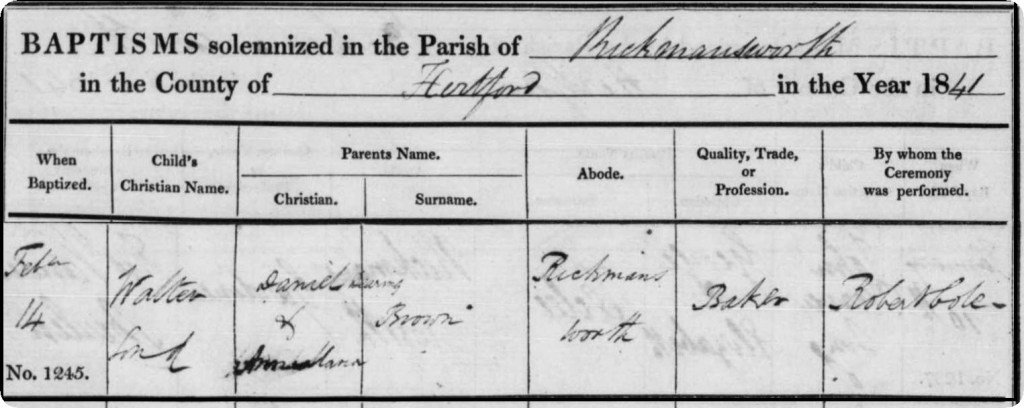 BAPTISMS solemnized in the Parish of Rickmansworth
in the County of Hertford in the Year 1841
When Baptized.
Child's Christian Name.
Parents Name.
Christian.
Surname.
Abode.
Quality, Trade, or Profession.
By whom the Ceremony was performed.
Febr
14
No. 1245.
Walter
Son of
Daniel
&
Brown
Rickmans
worth
Baker
Robert Cole